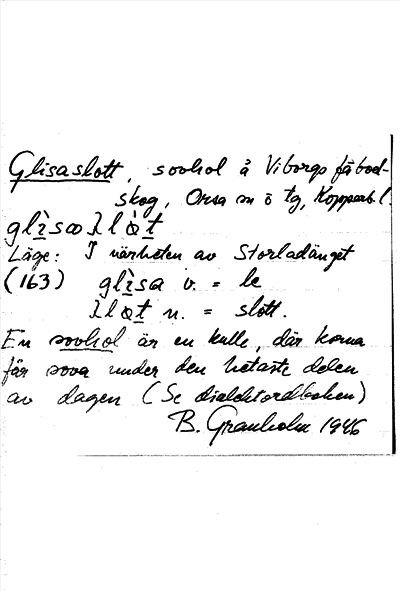 Glisaslott, sovhol å Viborgs fäbod-
skog, Orsa sn o tg, Kopparb. l.
glìsaslòt
Läge: I närheten av Storladänget
(163) glìsa v. = le
slòt n. = slott.
En sovhol är en kulle, där korna
får sova under den hetaste delen
av dagen (Se dialektordboken)
B. Granholm 1946